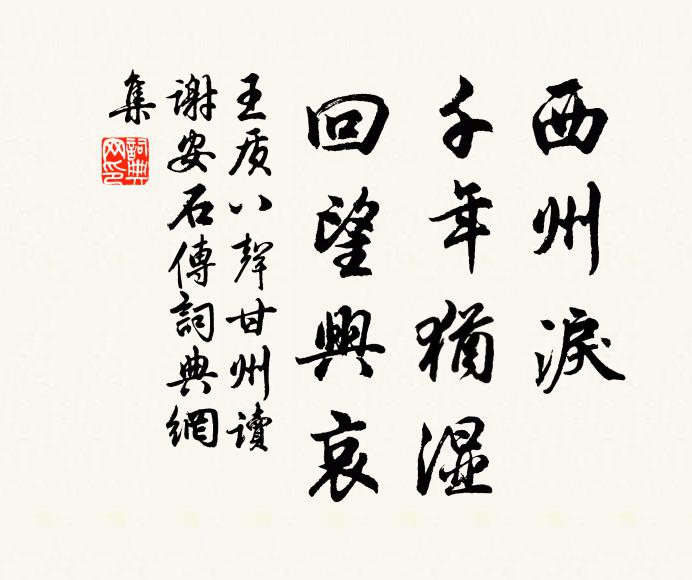 西州淚
千年猶湿
回望興哀
王质八聲甘州读
谢安石傳詞典網
集
詞典网印